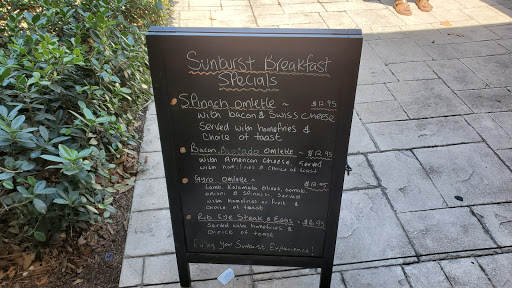 Sunburst Breakfast
Specials
Spinach omletle ~ $12.95
with bacon & Swiss cheese
Served with homefries &
Choice of toast
Bacon, Avocado omletle - $12.95
with American cheese, served
with homefries & choice of toast
Gyro omletle ~ $12.95
Lamb, Kalamata olives, tomato,
onions & Spinach. Served
with homefries or fruit &
choice of toast
Rib Eye Steak & Eggs -
Served with homefries &
Choice of toast
Enjoy Your Sunburst Experience!